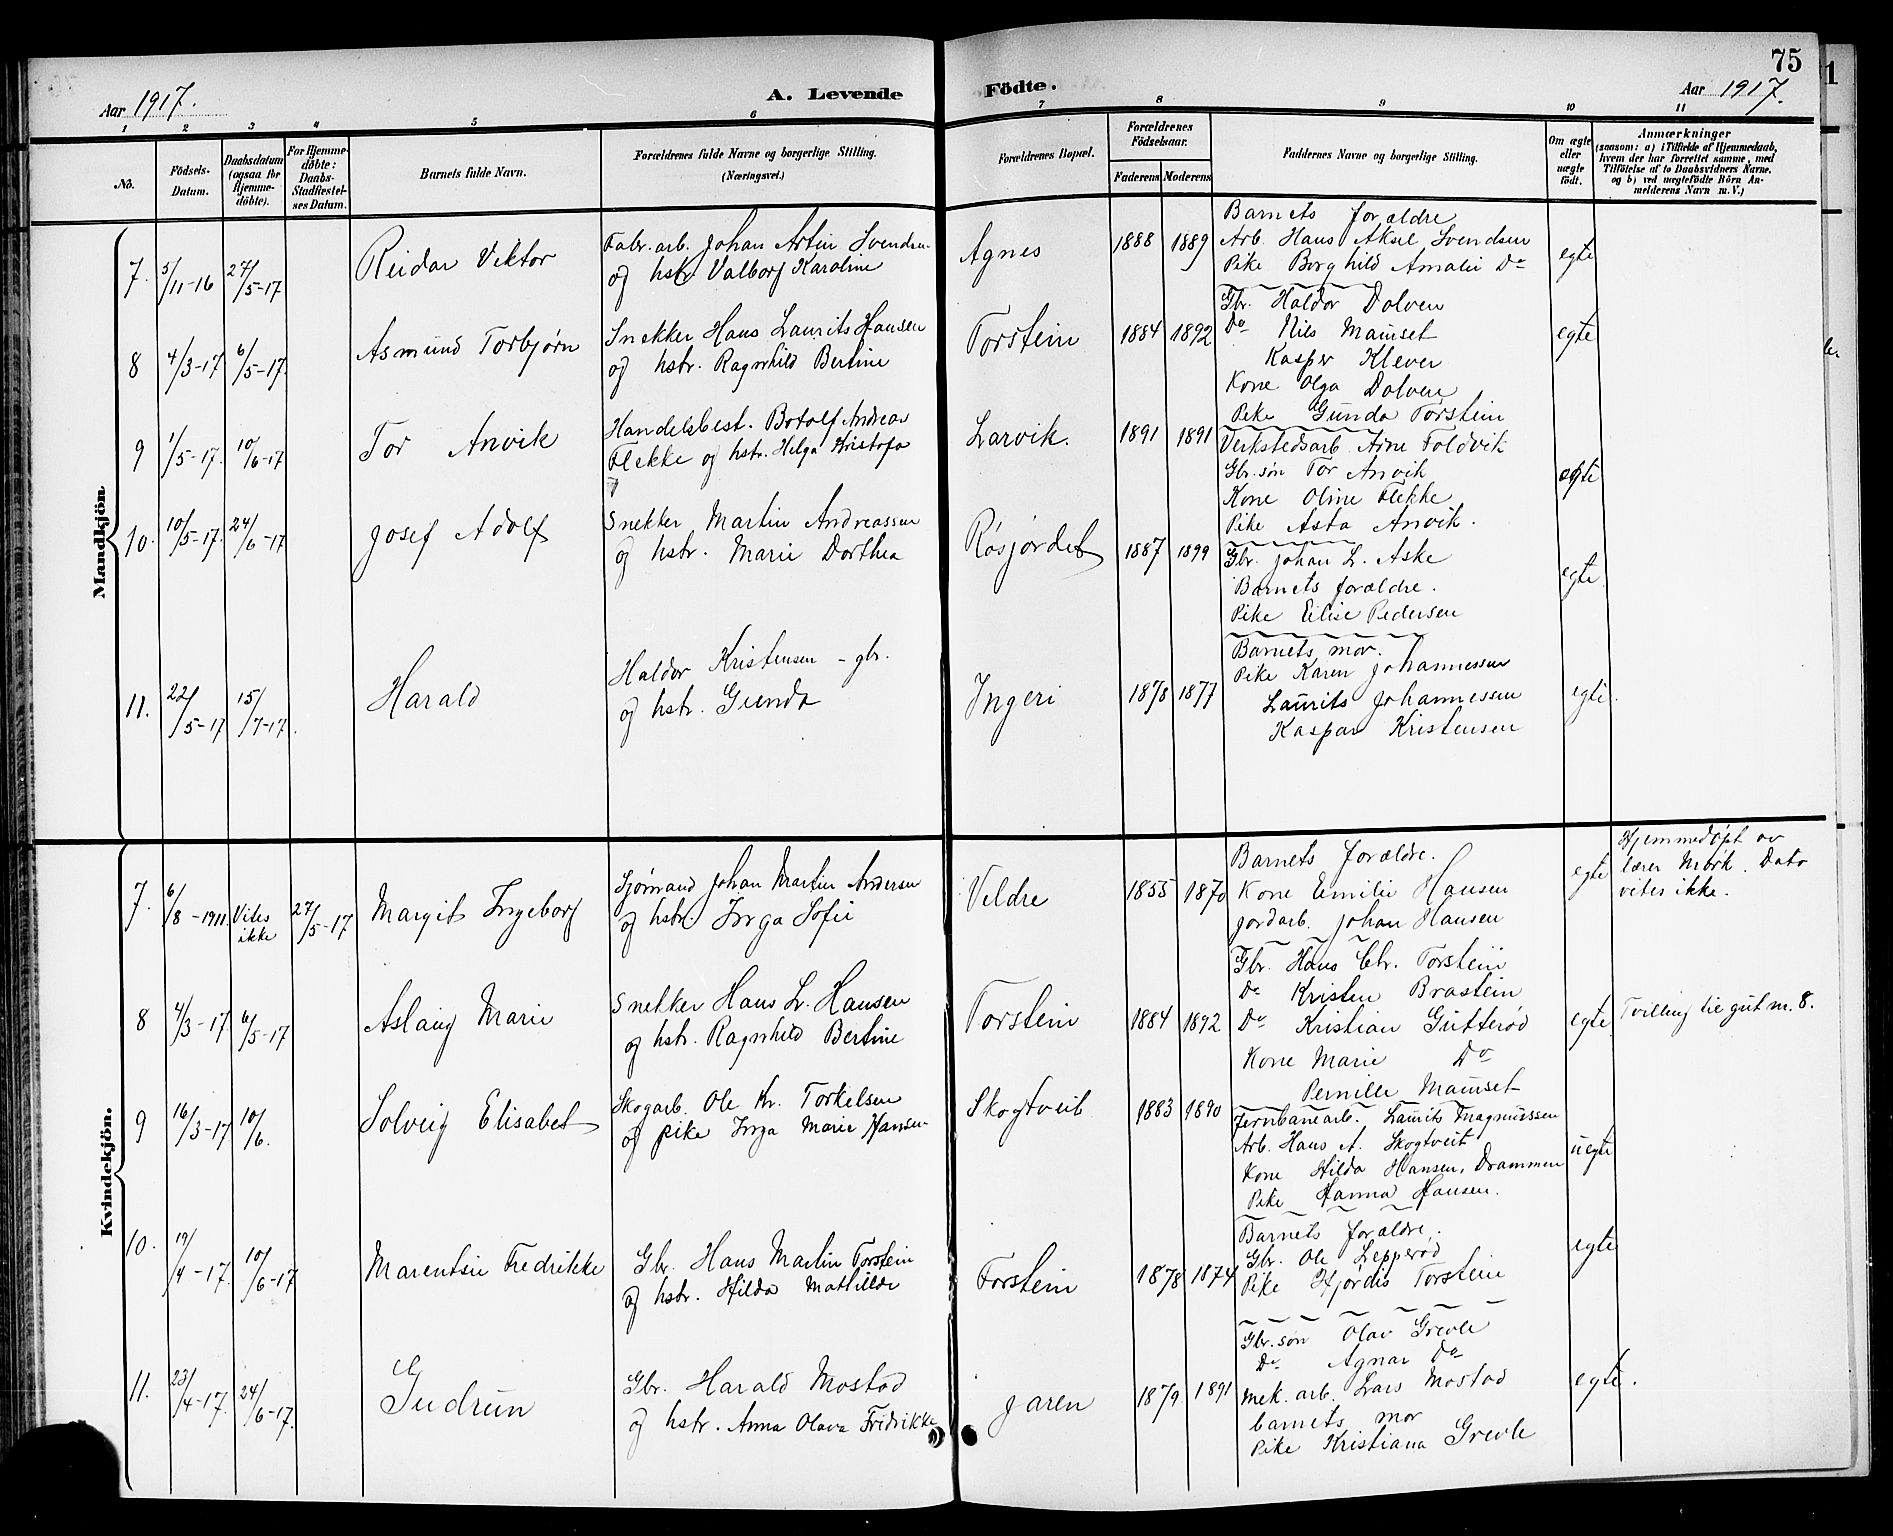 75
Aar 1917.
A. Levende Födte.
Aar 1917.
1 2 3 4 5 6 7 8 9 10 11
No.
Födsels-Datum.
Daabsdatum (ogsaa for Hjemmedöbte).
For Hjemmedöbte: Daabs-Stadfæstelses Datum.
Barnets fulde Navn.
Forældrenes fulde Navne og borgerlige Stilling. (Næringsvei.)
Forældrenes Bopæl.
Forældrenes Födselsaar.
Faderens Moderens
Faddernes Navne og borgerlige Stilling.
Om ægte eller uægte födt.
Anmærkninger
(saasom: a) i Tilfælde af Hjemmedaab, hvem der har forrettet samme, med Tilföielse af to Daabsvidners Navne, og b) ved uægtefödte Börn Anmelderens Navn m. V.)
Mandkjön
7. 5/11-16 27/5-17 Reidar Viktor
Fabr. arb. Johan Artin Svendsen
og hstr. Valborg Karoline
Agnes 1888 1889
Barnets forældre
Arb. Hans Aksel Svendsen
Pike Borghild Amalie Do
egte
8 4/3-17 6/5-17. Asmund Torbjørn
Snekker Hans Laurits Hansen
og hstr. Ragnhild Bertine
Torstein 1884 1892
Gbr. Haldor Dolven
Do Nils Mauset
Kasper Klever
Kone Olga Dolven
Pike Gunda Torstein
egte
9 1/5-17. 10/6-17 Tor Anvik
Handelsbest. Botolf Andreas
Flekke og hstr. Helga Kristofa
Larvik. 1891 1891
Verkstedsarb. Arne Foldvik
Gbr. søn Tor Anvik
Kone Oline Flekke
Pike Asta Anvik.
egte
10. 10/5-17. 24/6-17 Josef Adolf
Snekker Martin Andreassen
og hstr. Marie Dorthea
Røsjordet 1887 1899
Gbr. Johan L. Aske
Barnets forældre.
Pike Elise Pedersen
egte
11. 22/5-17 15/7-17. Harald
Haldor Kristensen - gbr.
og hstr. Gunda
Ingeri 1878 1877
Barnets mor.
Pike Karen Johannessen
Laurits Johannessen
Kaspar Kristensen
egte.
Kvindekjön.
7. 6/8-1911. Vites ikke 27/5-17 Margit Ingeborg
Sjømand Johan Martin Andersen
og hstr. Inga Sofie
Veldre 1855 1870
Barnets forældre.
Kone Emilie Hansen
jordarb. Johan Hansen
egte
Hjemmedøpt av
lærer Mørk. Dato
vites ikke.
8 4/3-17 6/5-17 Aslaug Marie
Snekker Hans L. Hansen
og hstr. Ragnhild Bertine
Torstein 1884 1892
Gbr. Hans Chr. Torstein
Do Kristen Brastein
Do Kristian Gutterød
Kone Marie Do
Pernille Mauset
egte
Tvilling til gut nr. 8.
9 16/3-17 10/6. Solveig Elisabet
Skogarb. Ole Kr. Torkelsen
og pike Inga Marie Hansen
Skogtveit 1883 1890
Jernbanearb. Laurits Magnussen
Arb. Hans A. Skogtveit
Kone Hilda Hansen, Drammen
Pike Hanna Hansen.
uegte
10. 19/4-17. 10/6-17 Marentsie Fredrikke
Gbr. Hans Martin Torstein
og hstr. Hilda Mathilde
Torstein 1878 1874
Barnets forældre.
Gbr. Ole Lepperød
Pike Hjørdis Torstein
egte
11. 23/4-17. 24/6-17. Gudrun
Gbr. Harald Mostad
og hstr. Anna Olava Fridrikke
Jaren 1879. 1891
Gbr. søn Olav Grevle
Do Agnar Do
Mek. arb. Lars Mostad
barnets mor
Pike Kristiana Grevle
egte.